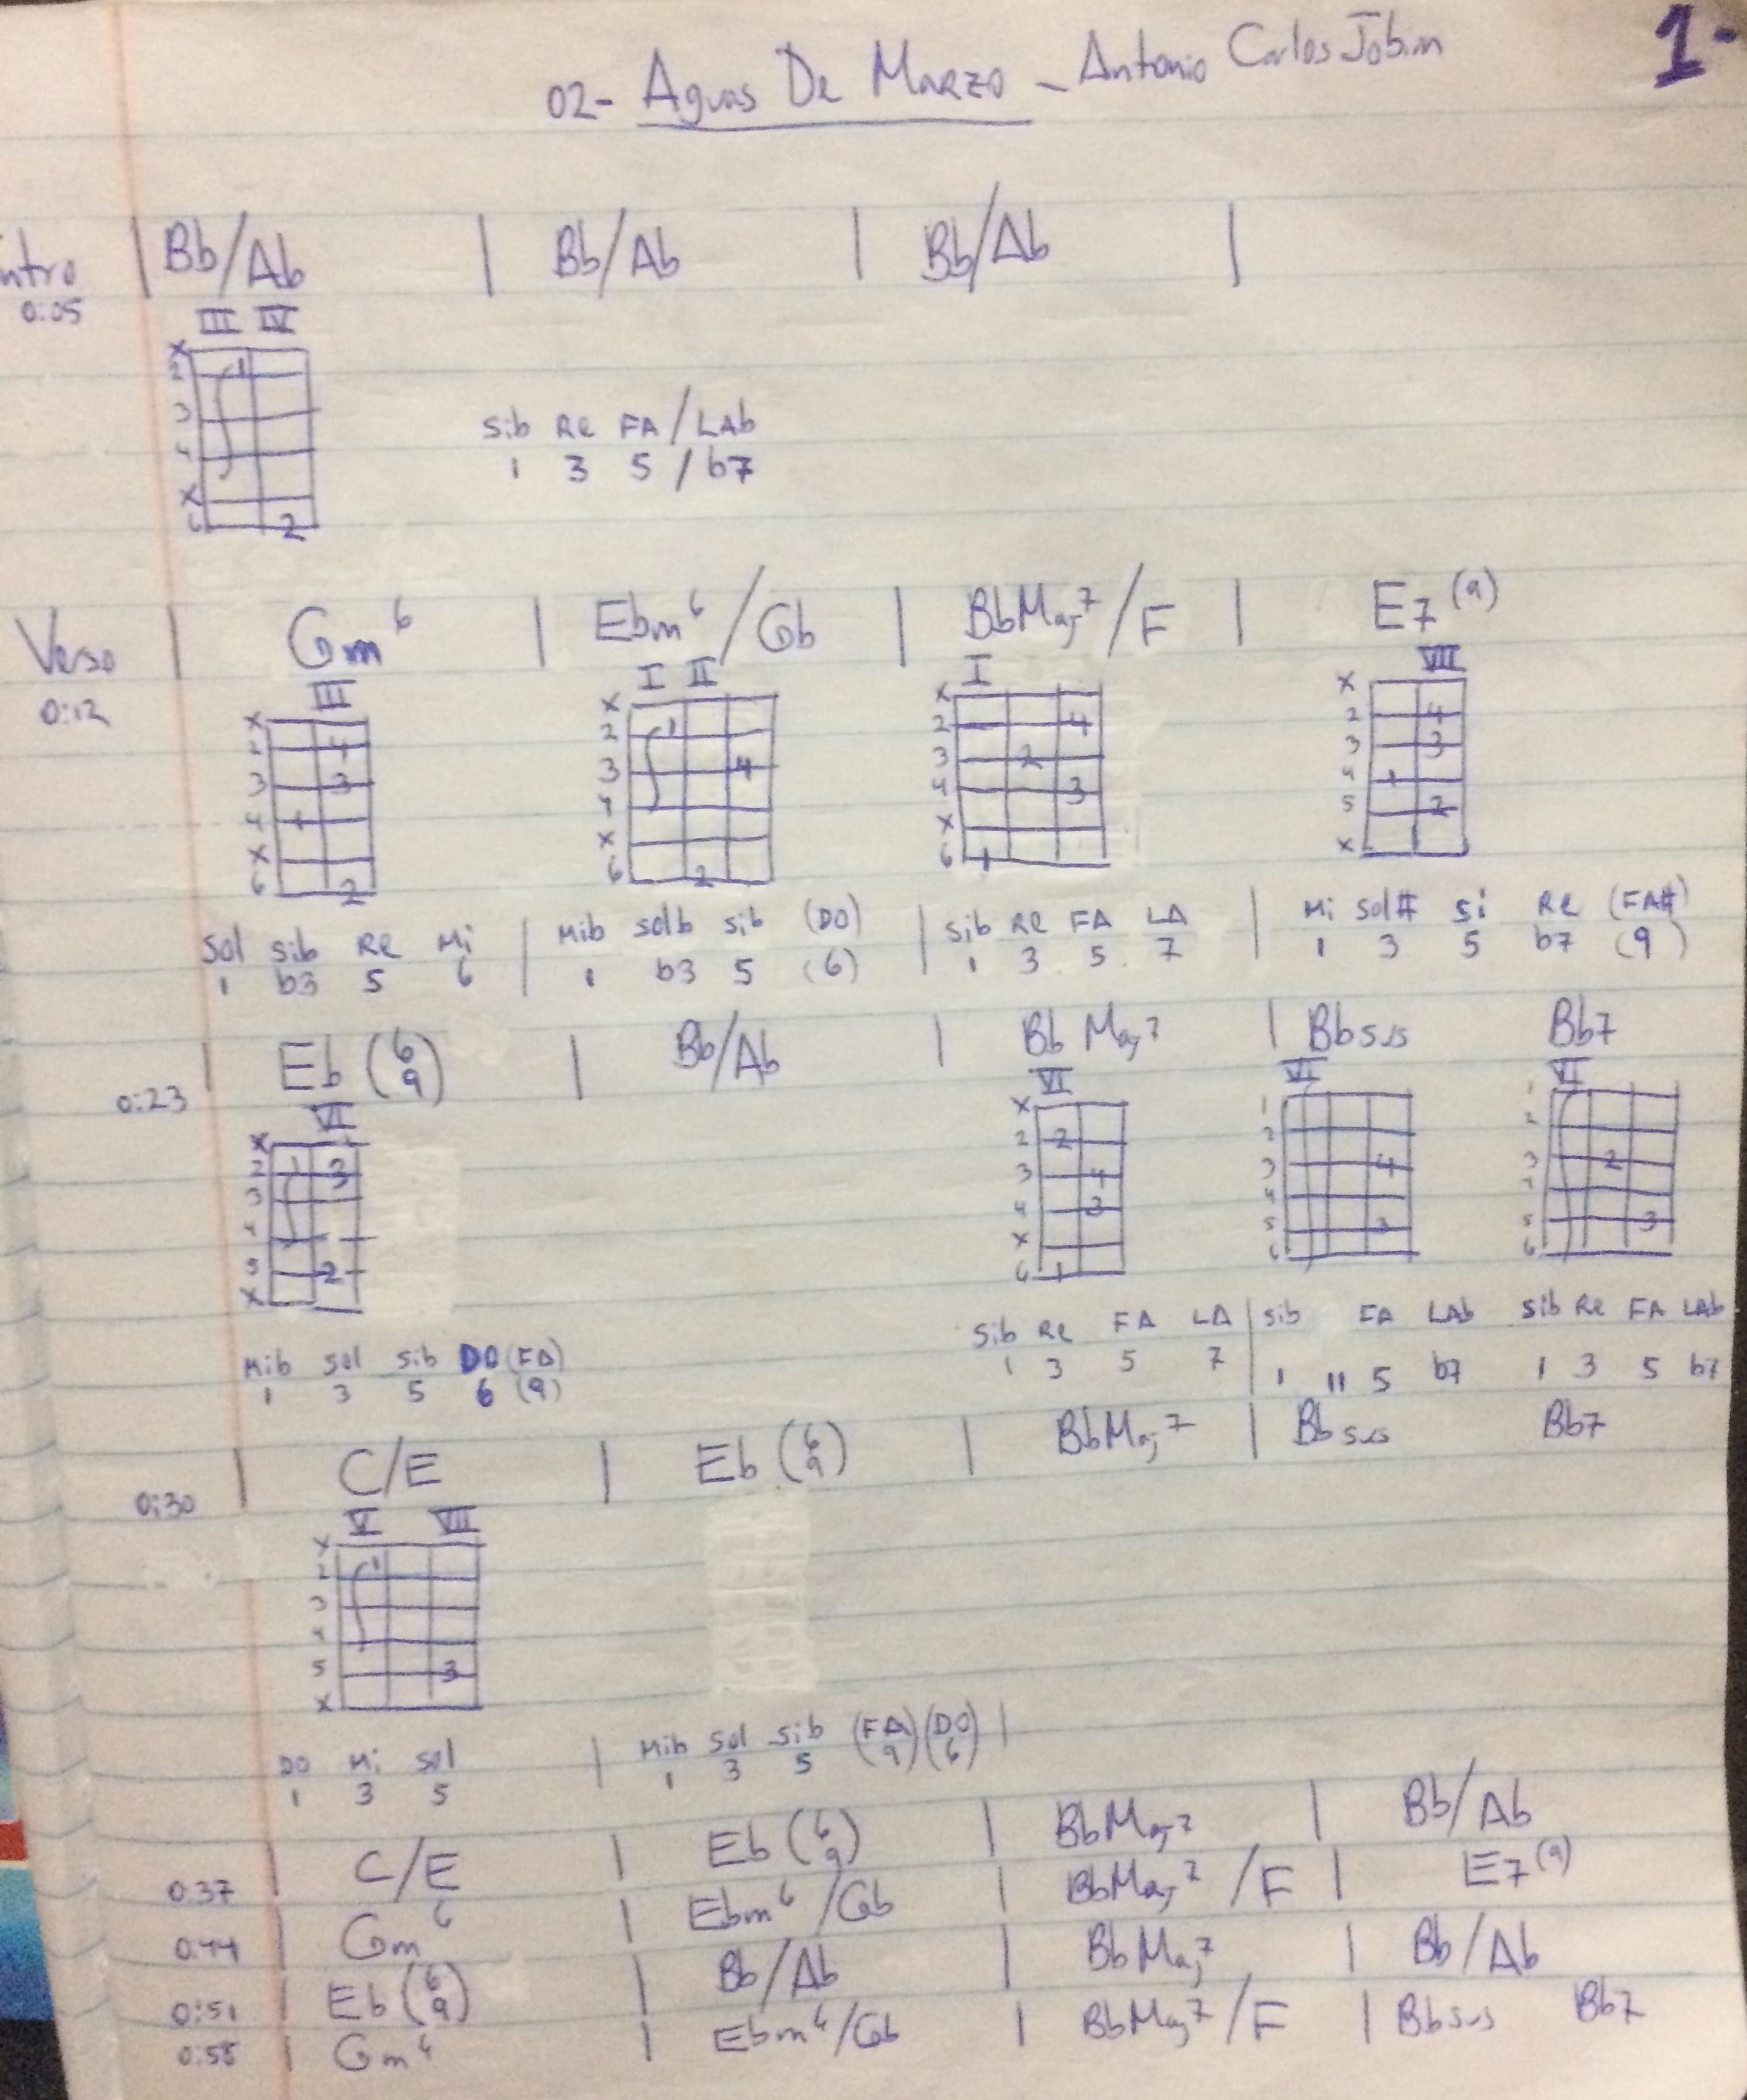 1-
02- Aguas De Marzo - Antonio Carlos Jobim
ntro | Bb/Ab | Bb/Ab | Bb/Ab |
0:05
III IV
x
2 1
3
4
x
6 2
Sib Re FA / LAb
1 3 5 / b7
Verso | Gm6 | Ebm6/Gb | BbMaj7/F | E7(9)
0:12
III I II I VII
x x x x
2 4 2 1 2 4 2 4
3 3 3 4 3 2 3 3
4 1 4 4 3 4 1
x x x 5 2
6 2 6 2 6 1 x
Sol Sib Re Mi | Mib Solb Sib (DO) | Sib Re FA LA | Mi Sol# Si Re (FA#)
1 b3 5 6 | 1 b3 5 (6) | 1 3 5 7 | 1 3 5 b7 (9)
0:23 | Eb(6 9) | Bb/Ab | BbMaj7 | Bbsus Bb7
VI VI VI VI
x x 1 1
2 1 3 2 2 2 2
3 3 4 3 4 3 2
4 4 3 4 4
5 2 x 5 3 5 3
x 6 1 6 6
Sib Re FA LA | Sib FA LAb Sib Re FA LAb
1 3 5 7 | 1 11 5 b7 1 3 5 b7
Mib Sol Sib DO (FA)
1 3 5 6 (9)
0:30 | C/E | Eb(6 9) | BbMaj7 | Bbsus Bb7
V VII
x
2 1
3
4
5 3
x
DO Mi Sol | Mib Sol Sib (FA) (DO) |
1 3 5 1 3 5 (9) (6)
0:37 | C/E | Eb(6 9) | BbMaj7 | Bb/Ab
0:44 | Gm6 | Ebm6/Gb | BbMaj7/F | E7(9)
0:51 | Eb(6 9) | Bb/Ab | BbMaj7 | Bb/Ab
0:58 | Gm6 | Ebm6/Gb | BbMaj7/F | Bbsus Bb7